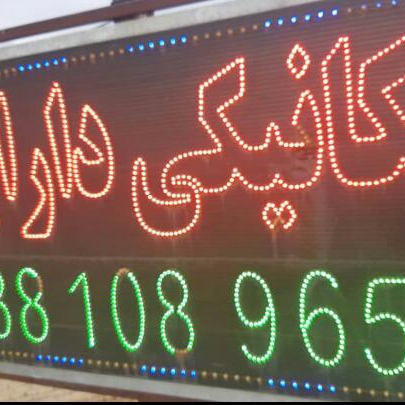 کانیکی هارا
8 108 965